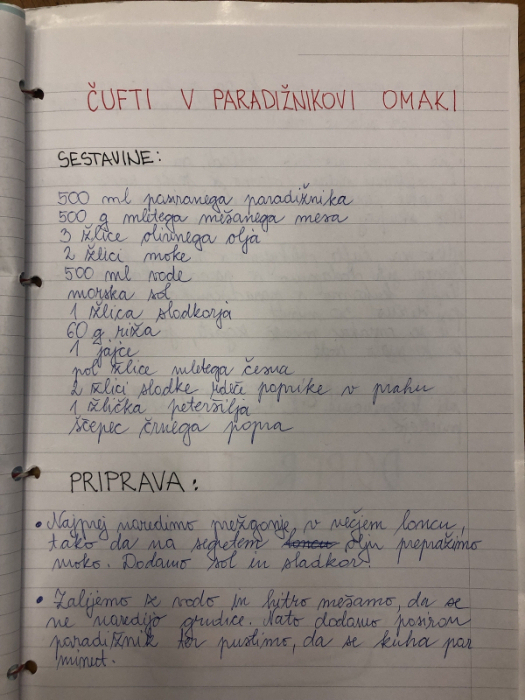 ČUFTI V PARADIŽNIKOVI OMAKI
SESTAVINE:
500 ml pasiranega paradižnika
500 g mletega mešanega mesa
3 žlice olivnega olja
2 žlici moke
500 ml vode
morska sol
1 žlica sladkorja
60 g riža
1 jajce
pol žlice mletega česna
2 žlici sladke rdeče paprike v prahu
1 žlička peteršilja
ščepec črnega popra
PRIPRAVA:
• Najprej naredimo prežganje v večjem loncu,
tako da na segretem loncu olju prepražimo
moko. Dodamo sol in sladkor.
• Zalijemo z vodo in hitro mešamo, da se
ne naredijo grudice. Nato dodamo pasiran
paradižnik ter pustimo, da se kuha par
minut.